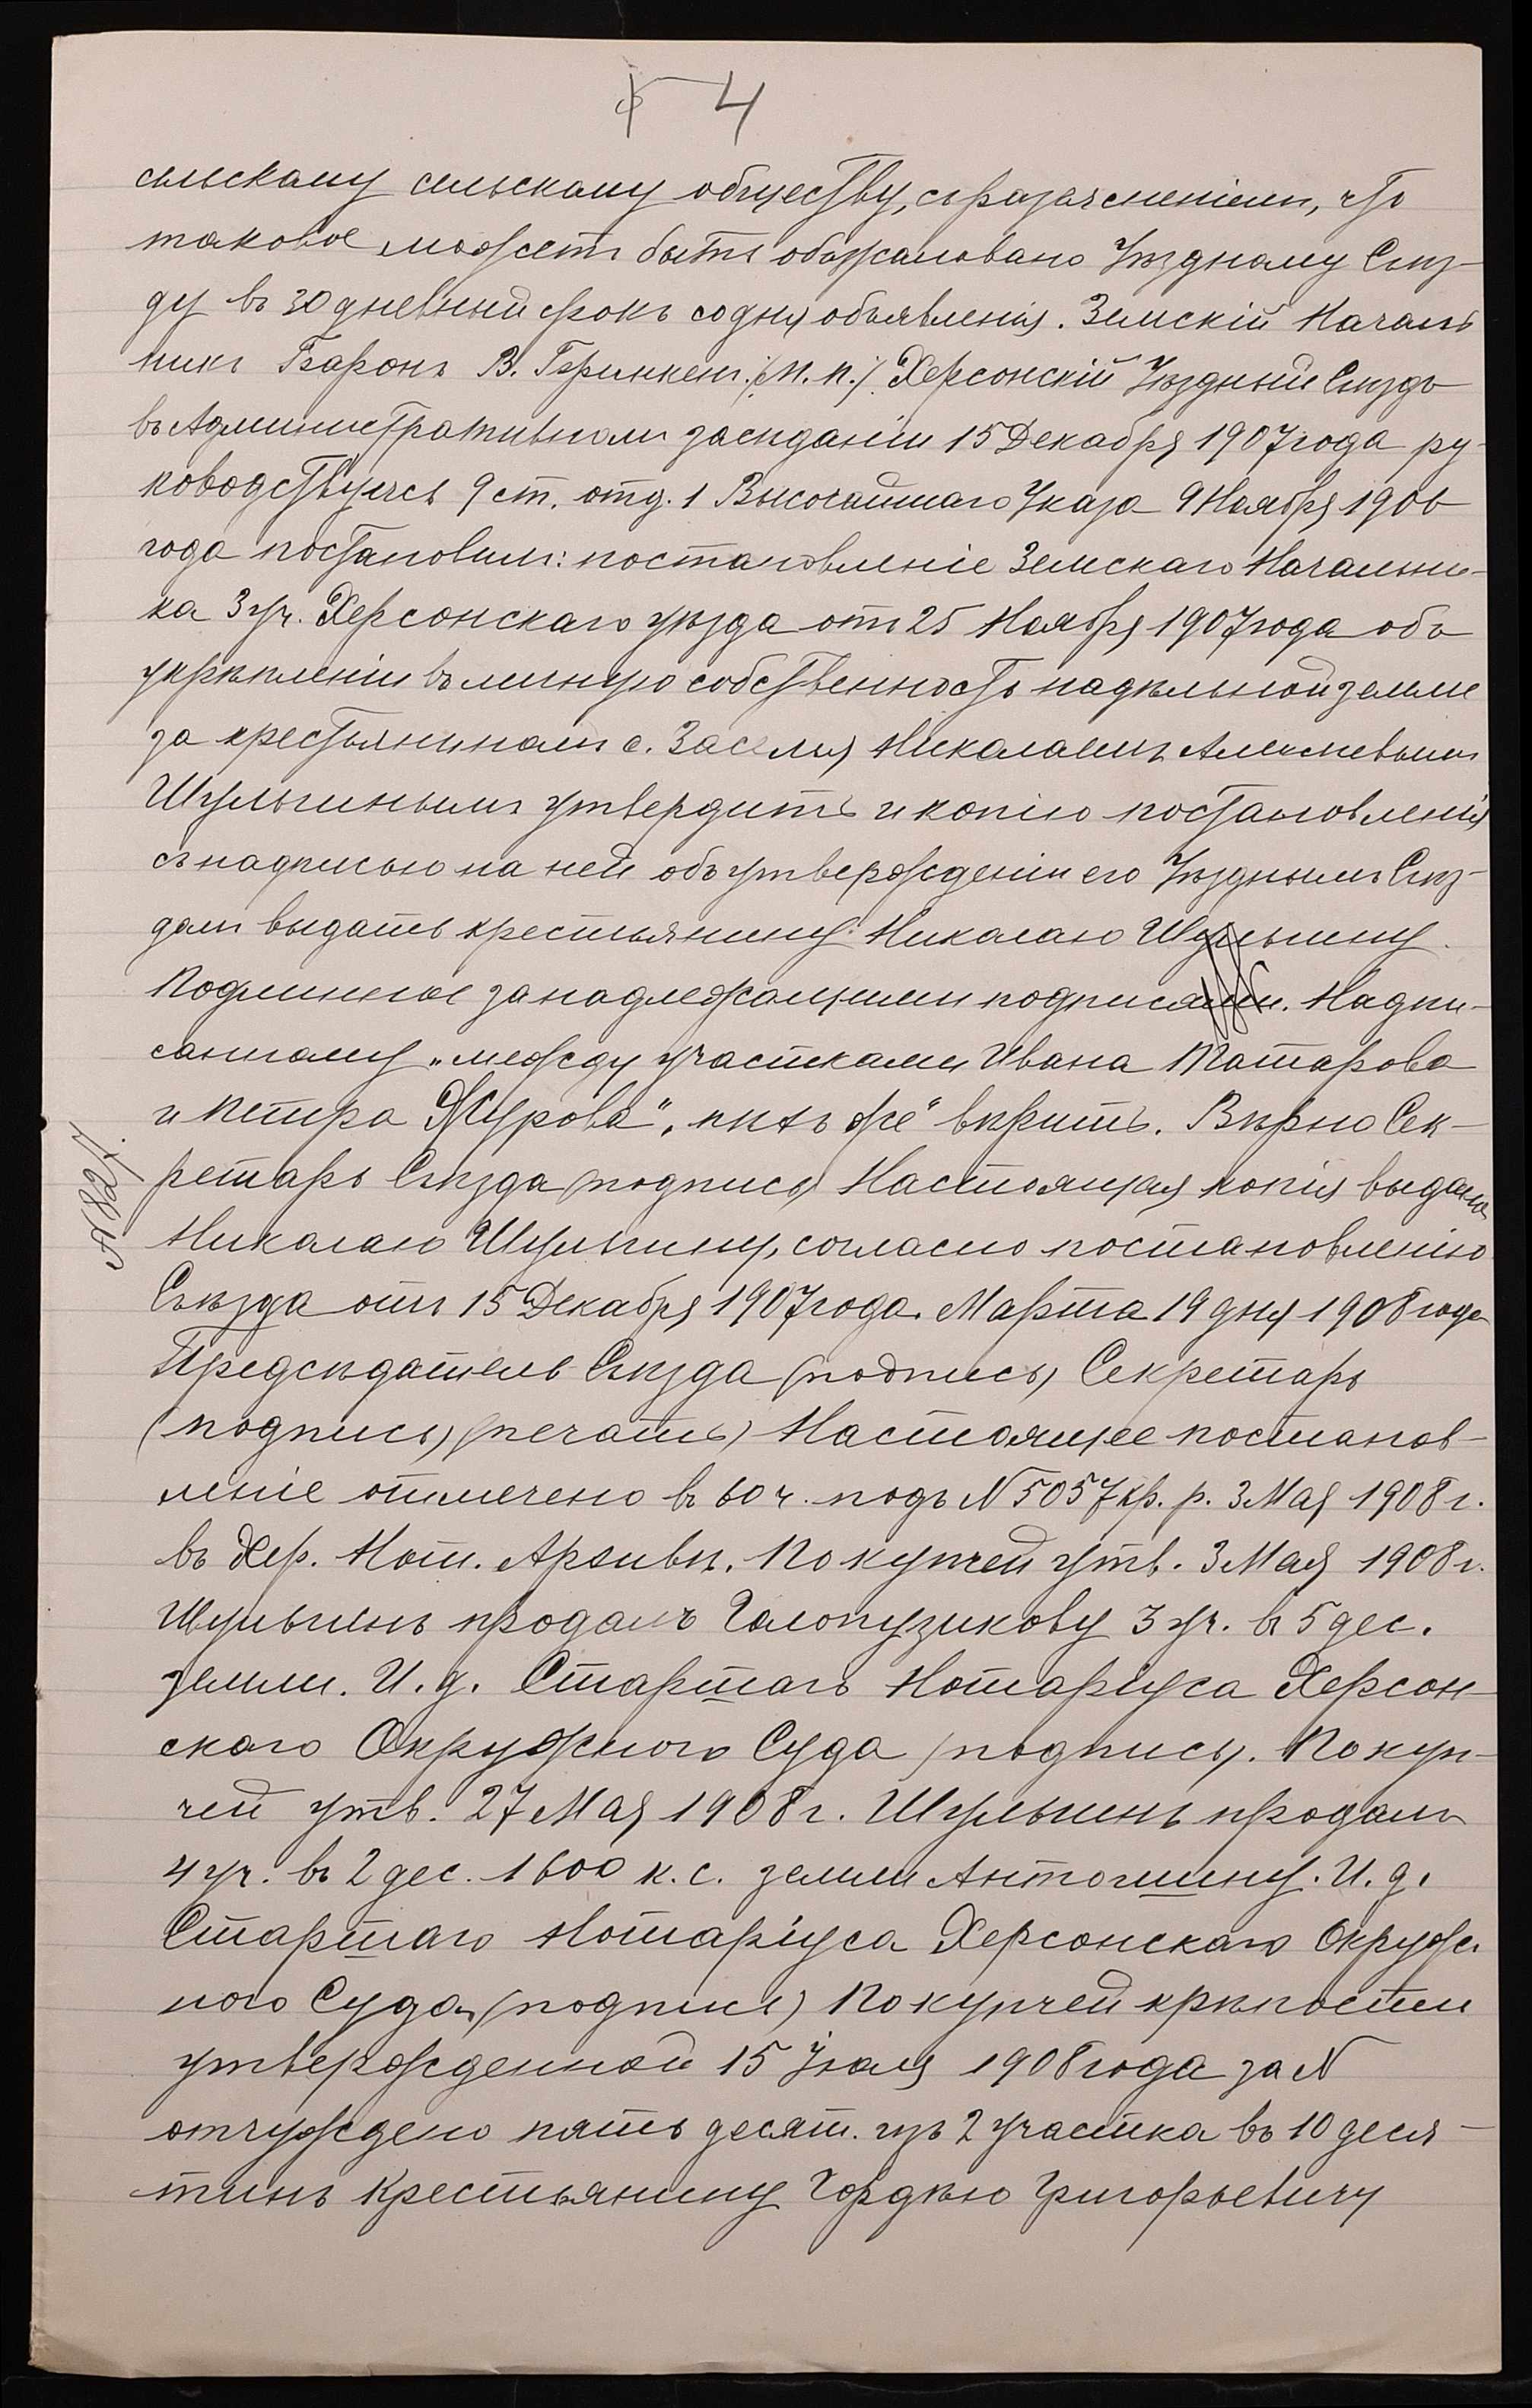 4
сельскому сельскому обществу, съ разъясненіемъ, что
таковое можетъ быть обжаловано Уѣздному Съѣз-
ду въ 30 дневный срокъ со дня объявленія. Земскій Началь
никъ Баронъ В. Бринкенъ. /М. П./ Херсонскій Уѣздный Съѣздъ
въ Административномъ засѣданіи 15 Декабря 1907 года ру-
ководствуясь 9 ст. отд. 1 Высочайшаго Указа 9 Ноября 1906
года постановилъ: постановленіе Земскаго Начальни-
ка 3 уч. Херсонскаго уѣзда отъ 25 Ноября 1907 года объ
укрѣпленіи въ личную собственность надѣльной земли
за крестьяниномъ с. Заселья Николаемъ Алексѣевымъ
Шульгинымъ утвердить и копію постановленія
съ надписью на ней объ утвержденіи его Уѣзднымъ Съѣз-
домъ выдать крестьянину Николаю Шульгину.
Подлинное за надлежащими подписями. Надпи-
санному „между участками Ивана Татарова
и Петра Журова", же" вѣрить. Вѣрно Сек-
ретарь Съѣзда (подпись) Настоящая копія выдана
№ 827.
Николаю Шульгину, согласно постановленію
Съѣзда отъ 15 Декабря 1907 года. Марта 19 дня 1908 года
Предсѣдатель Съѣзда (подпись) Секретарь
(подпись) (печать) Настоящее постанов-
леніе отмечено в 60 ч. подъ N 5057 кр. р. 3 Мая 1908 г.
въ Хер. Нот. Архивѣ. По купчей утв. 3 Мая 1908 г.
Шульгинъ продалъ Голопузикову 3 уч. в 5 дес.
земли. И. д. Старшаго Нотаріуса Херсон-
скаго Окружного Суда (подпись). По куп-
чей утв. 27 Мая 1908 г. Шульгинъ продалъ
4 уч. въ 2 дес. 1600 к. с. земли Антошину. И. д.
Старшаго Нотаріуса Херсонскаго Окруж-
ного Суда (подпись) По купчей крѣпости
утвержденной 15 Іюля 1908 года за N
отчуждено пять десят. изъ 2 участка въ 10 деся-
тинъ крестьянину Гордѣю Григорьевичу